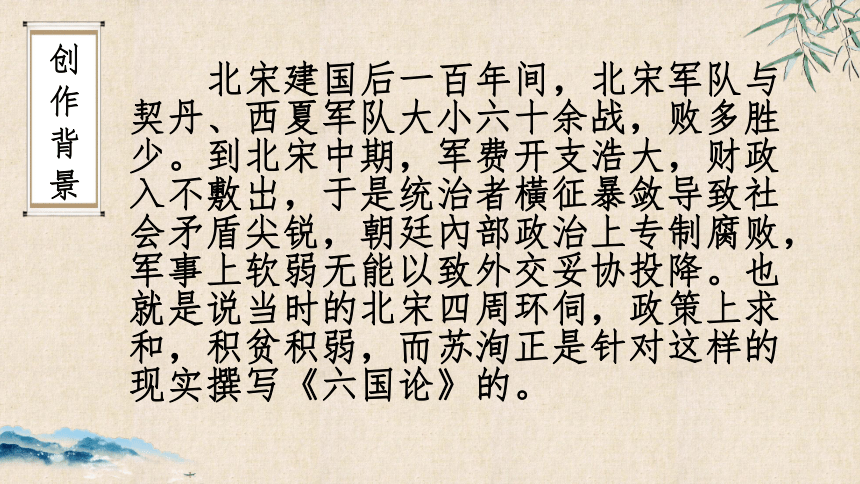 创作背景
北宋建国后一百年间，北宋军队与
契丹、西夏军队大小六十余战，败多胜
少。到北宋中期，军费开支浩大，财政
入不敷出，于是统治者横征暴敛导致社
会矛盾尖锐，朝廷内部政治上专制腐败，
军事上软弱无能以致外交妥协投降。也
就是说当时的北宋四周环伺，政策上求
和，积贫积弱，而苏洵正是针对这样的
现实撰写《六国论》的。